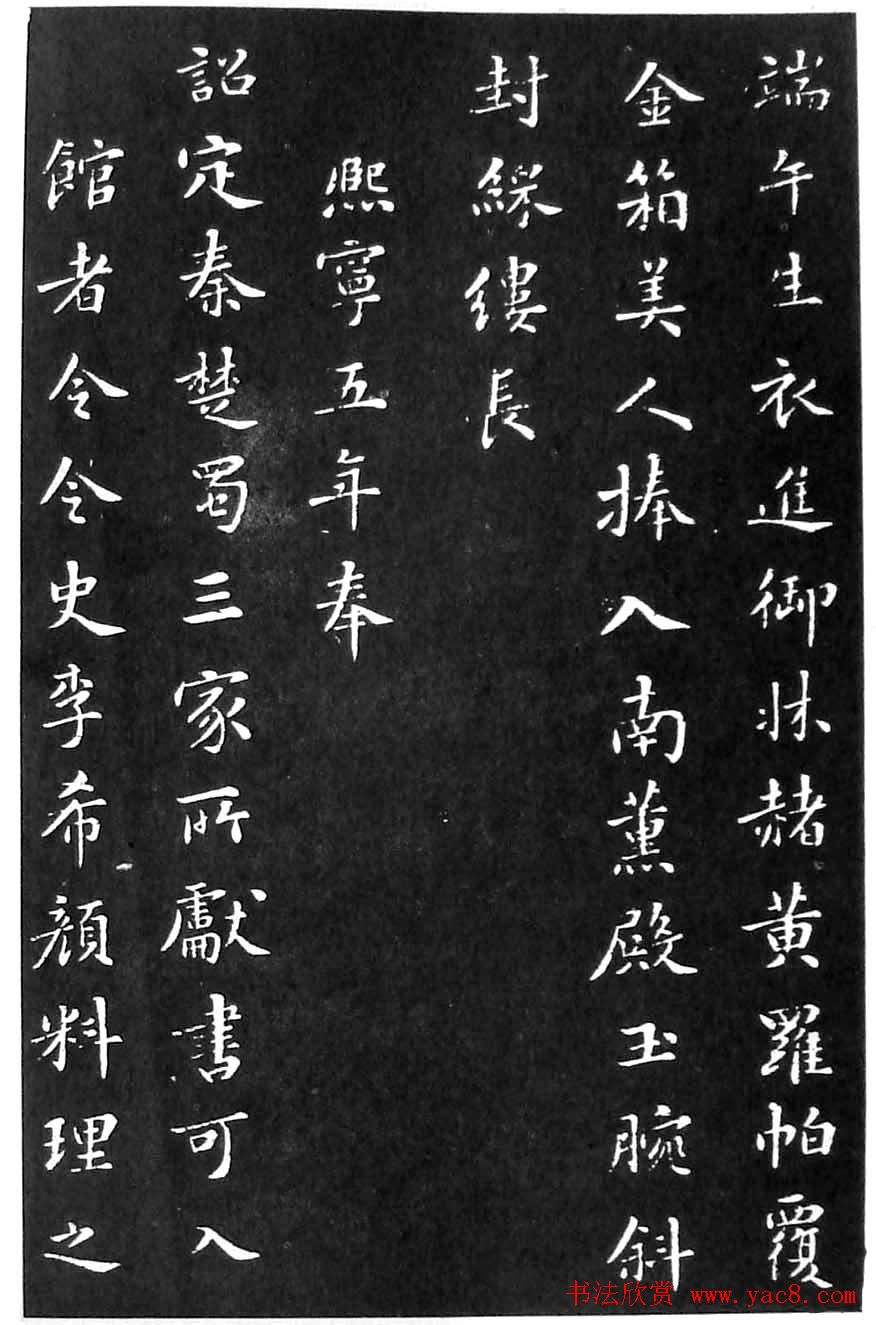 端午生衣進御牀赭黄羅帕覆
金箱美人捧入南薰殿玉腕斜
封綵縷長
熙寧五年奉
詔定秦楚蜀三家所獻書可入
館者令令史李希顔料理之
书法欣赏 www.yac8.com